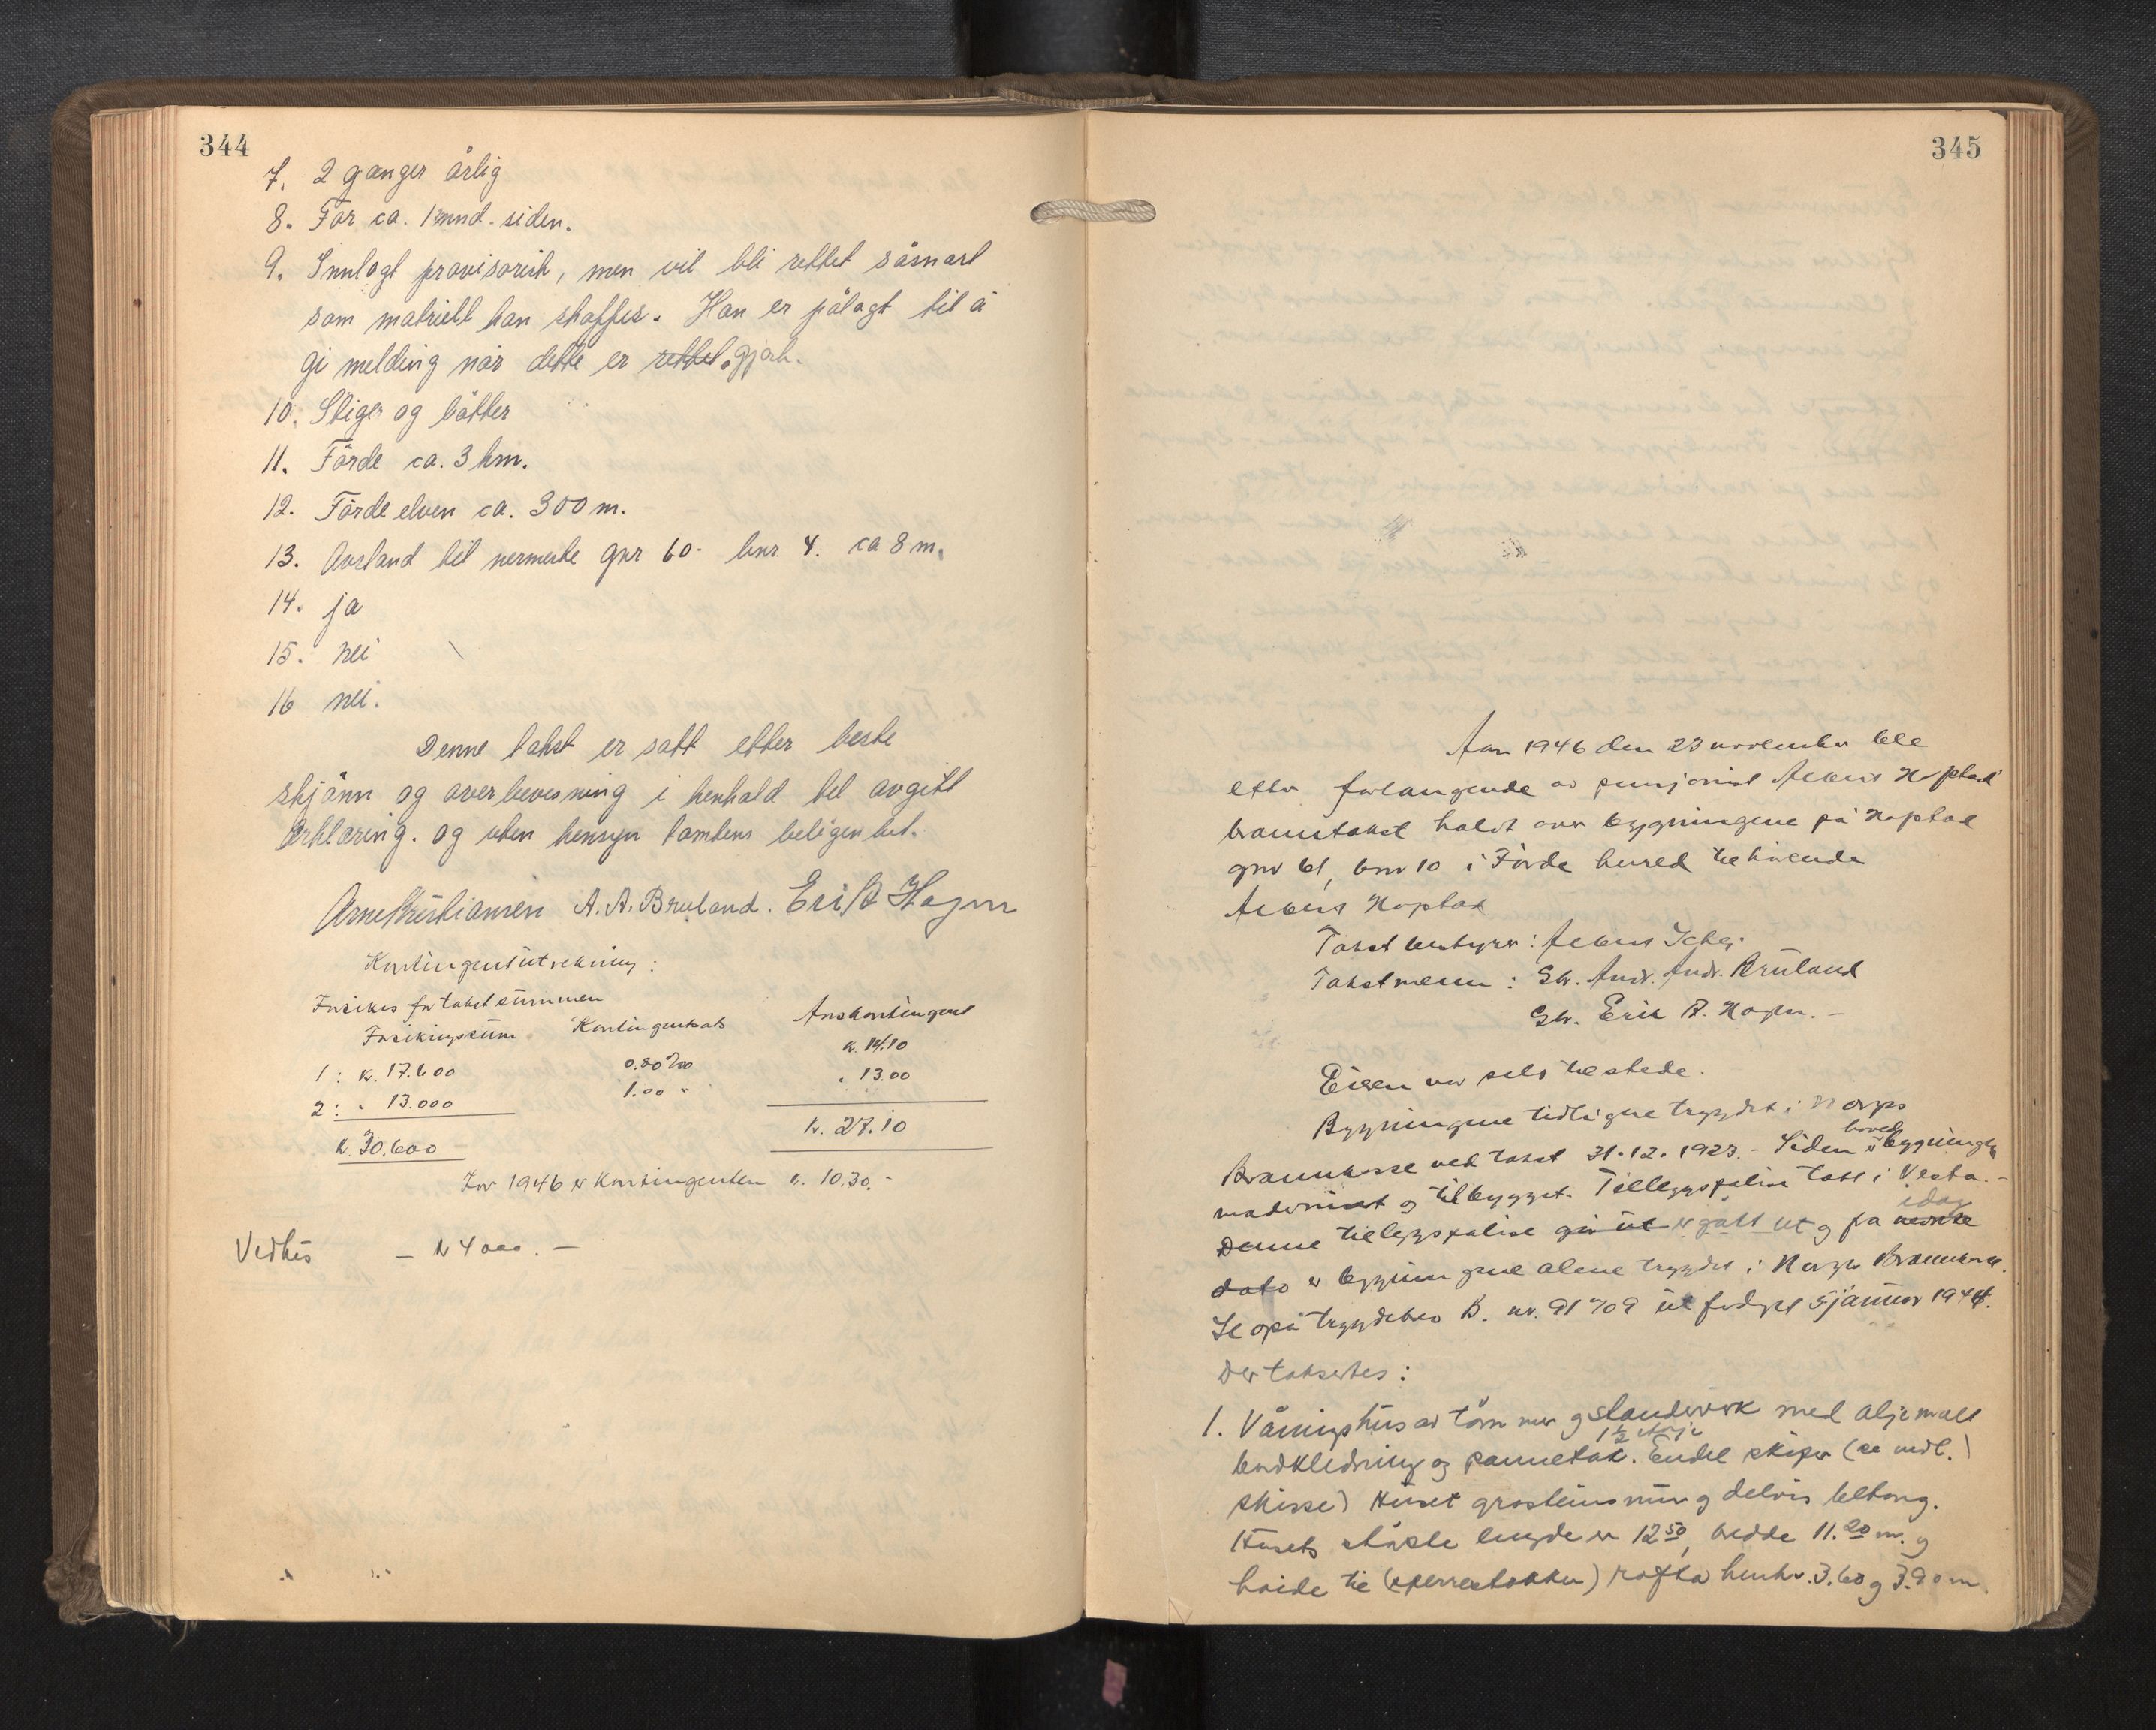 344
7. 2 ganger årlig
8. For ca. 1 mnd. siden.
9. Innlagt provisorisk, men vil bli rettet såsnart
som matriell kan skaffes. Han er pålagt til å
gi melding når dette er rettet. gjort.
10. Stiger og bøtter
11. Førde ca. 3 km.
12. Førde elven ca. 300 m.
13. Avstand til nermeste gnr 60 - bnr 4. ca 8 m.
14. ja
15. nei
16 nei.
Denne takst er satt etter beste
skjønn og overbevisning i henhold til avgitt
erklæring. og uten hensyn tomtens beligenhet.
Arne Kristiansen A. A. Bruland. Erik A Hagen
Kontingentsutrekning:
Forsikres for takstsummen
Forsikringssum Kontingentsats Årskontingent
1: kr. 17.600 0.80 ‰ kr. 14.10
2: " 13.000 1.00 " " 13.00
kr. 30.600 - kr. 27.10
For 1946 er Kontingenten kr. 10.30. -
Vedhus - kr 4000. -
345
Aar 1946 den 23 november ble
etter forlangende av pensjonist Albert Hopstad
branntakst holdt over bygningene på Hopstad
gnr 61, bnr 10 i Førde herred tilhørende
Albert Hopstad
Takstbestyrer:
Takstmenn: Gbr. Andr. Andr. Bruland
Gbr. Erik A. Hagen. -
Eieren var selv tilstede.
Bygningene tidligere trygdet i Norges
Brannkasse ved takst 31.12.1923. - Siden er hoved bygningen
modernisert og tilbygget. Tilleggspolise tatt i Vesta. -
Denne tilleggspolise går ut er gått ut og fra idag
dato er bygningene alene trygdet i Norges Brannkasse.
Se også trygdebev B. nr. 91709 utferdiget 5 januar 1944.
Der takseres:
1. Våningshus av tømmer og standerverk med oljemalt
1 1/2 etasje
bordkledning og pannetak. Endel skifer (se vedl.
skisse) Huset grosteinsmur og delvis betong.
Husets største lengde er 12 50, bredde 11.20 m. og
høide til (sperrestokken) rafta henhv. 3.60 og 3.90 m.